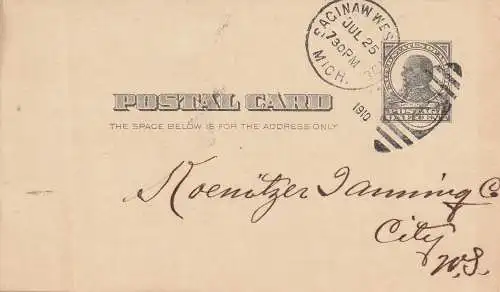 SAGINAW WES
JUL 25
730PM
MICH.
1910
POSTAL CARD
THE SPACE BELOW IS FOR THE ADDRESS ONLY.
Koenitzer Tanning Co
City
W.S.